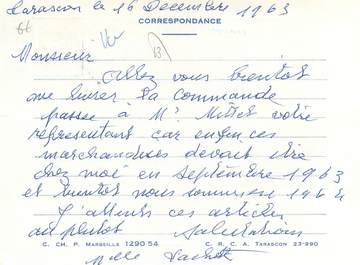 Tarascon le 16 Décembre 1963
CORRESPONDANCE
Monsieur
Allez vous bientot
me livrer la commande
passée à Mr votre
représentant car enfin ces
marchandises devait être
chez moi en septembre 1963
et bientot nous sommes 1964
J'attends ces articles
au plutot Salutations
C. CH. P. MARSEILLE 1290 54 C. R. C. A. TARASCON 23-990
Melle